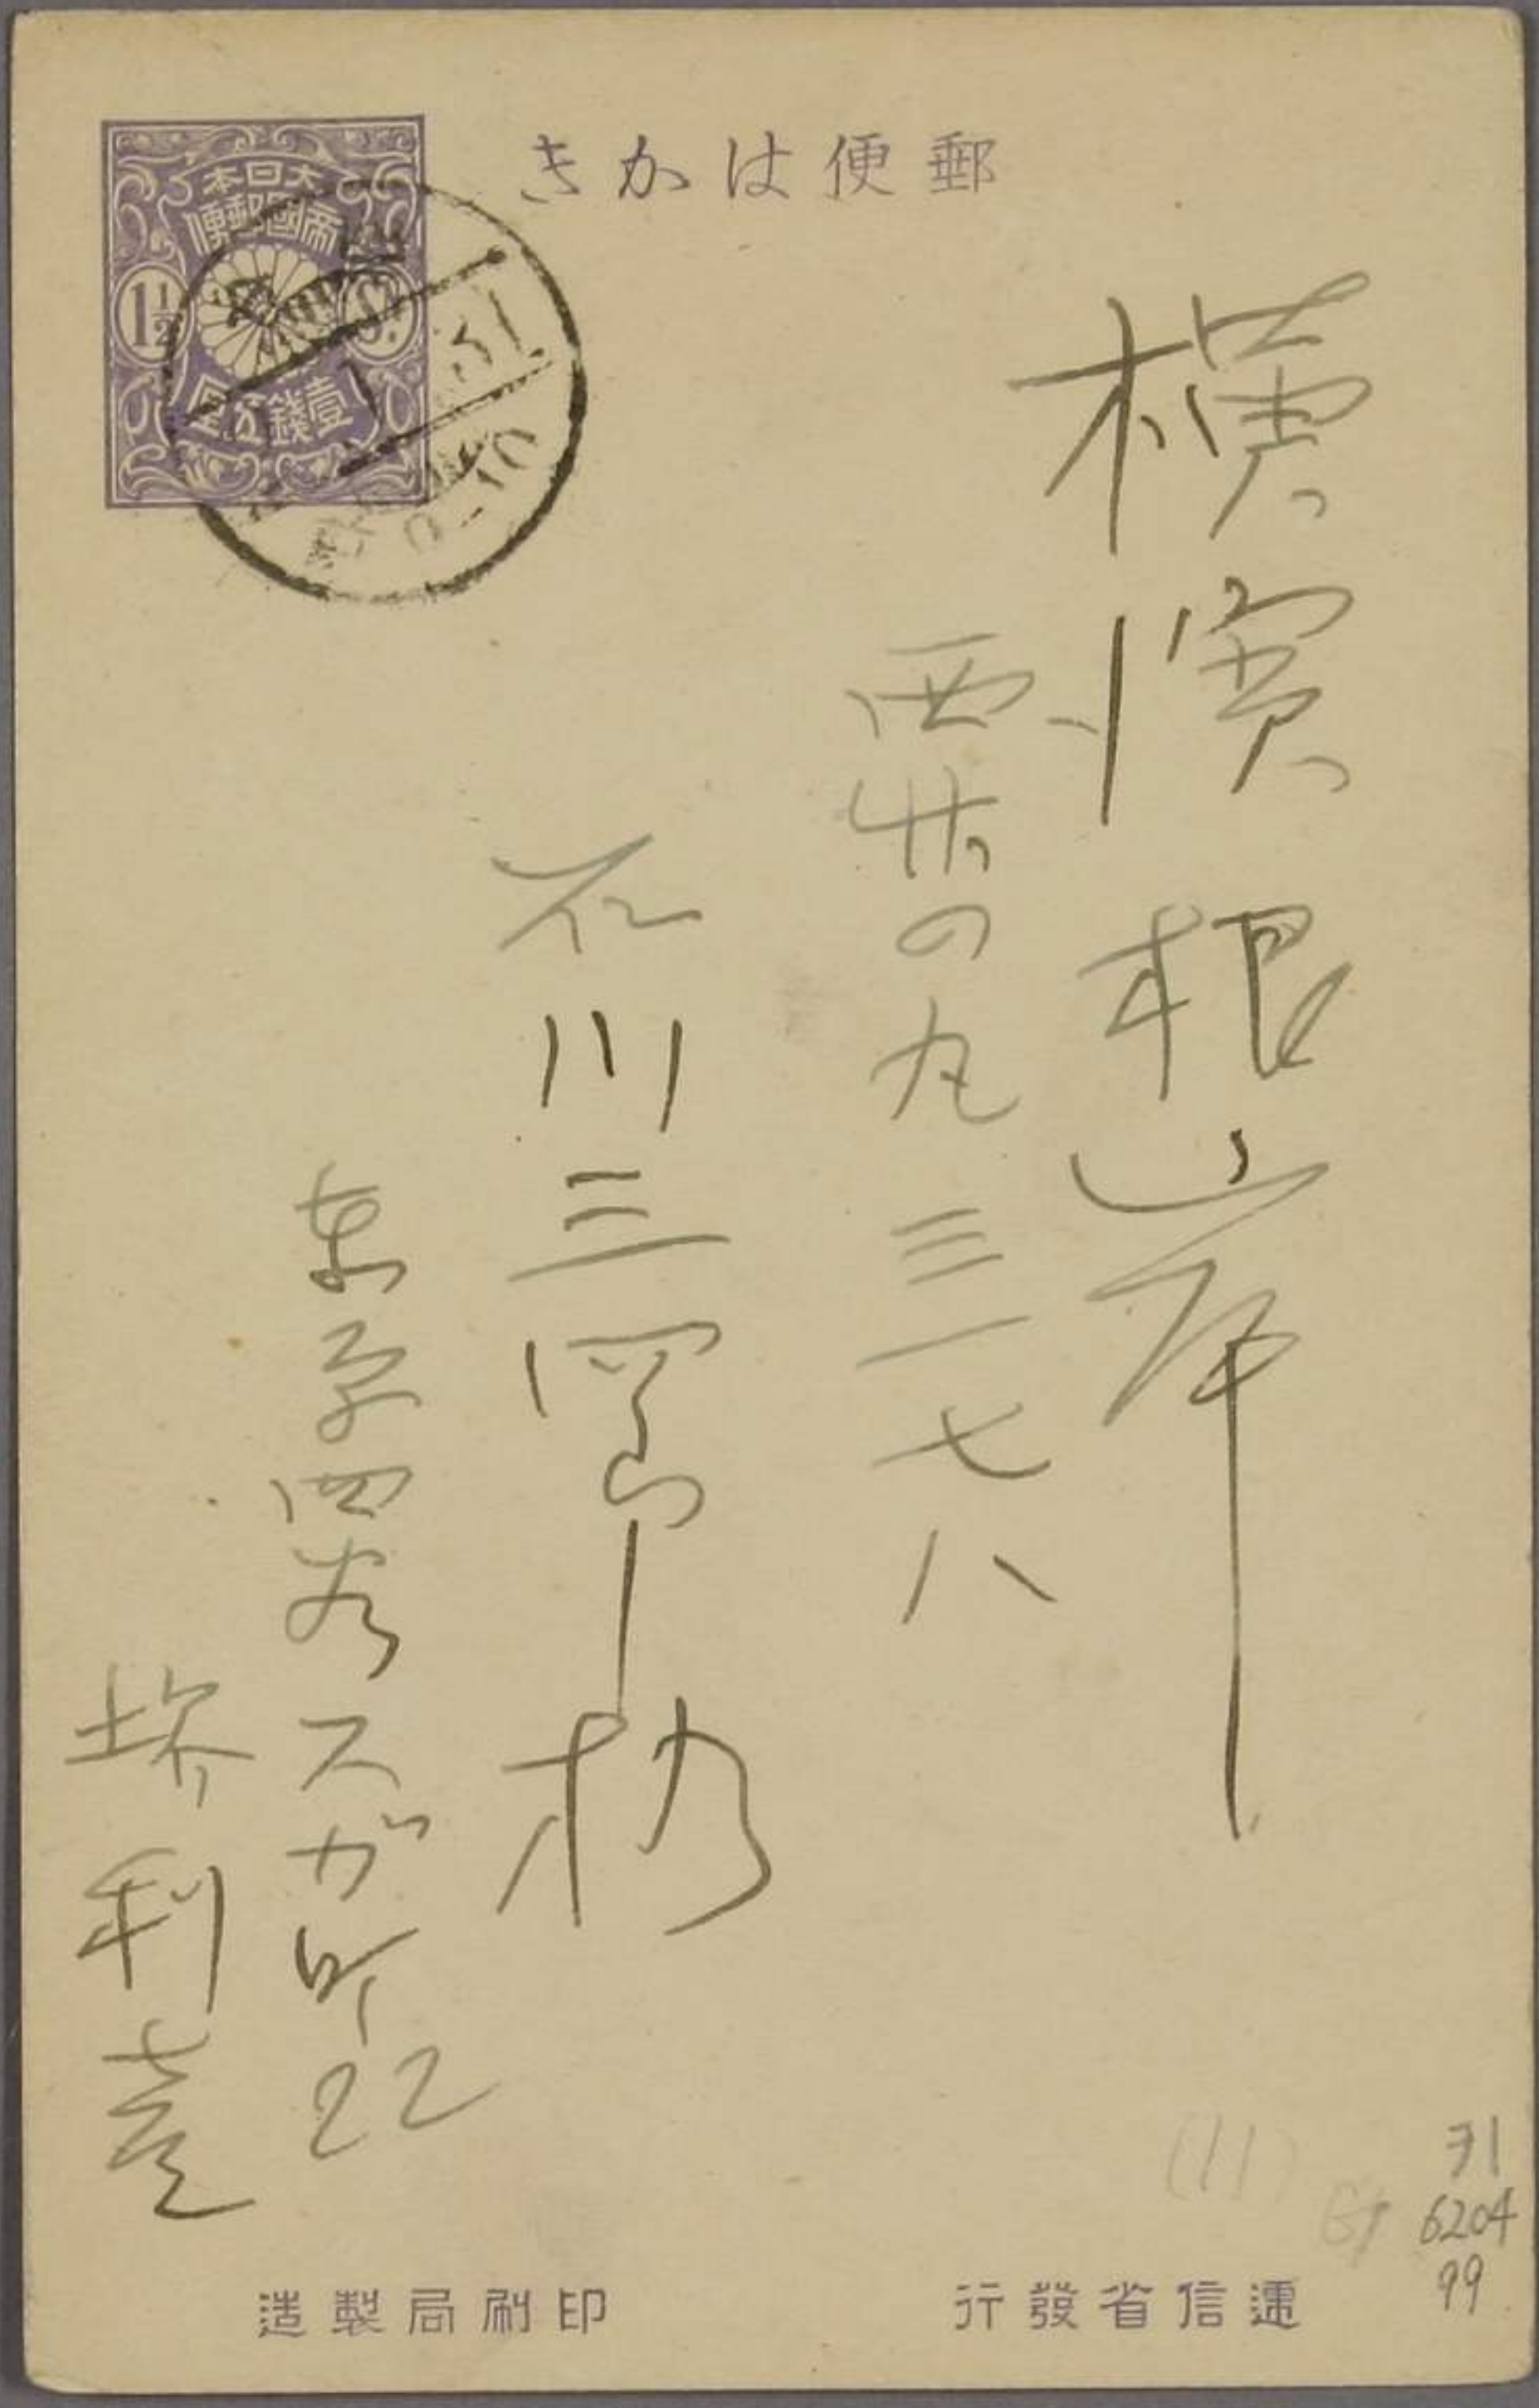 郵便はかき
大日本
帝國郵便
1½
壹錢五厘
横濱根岸
西竹の丸三一七八
石川三四郎様
東京四谷スガ町22
堺利彦
9-10
(11)
ヲ1
6204
99
遞信省發行
印刷局製造